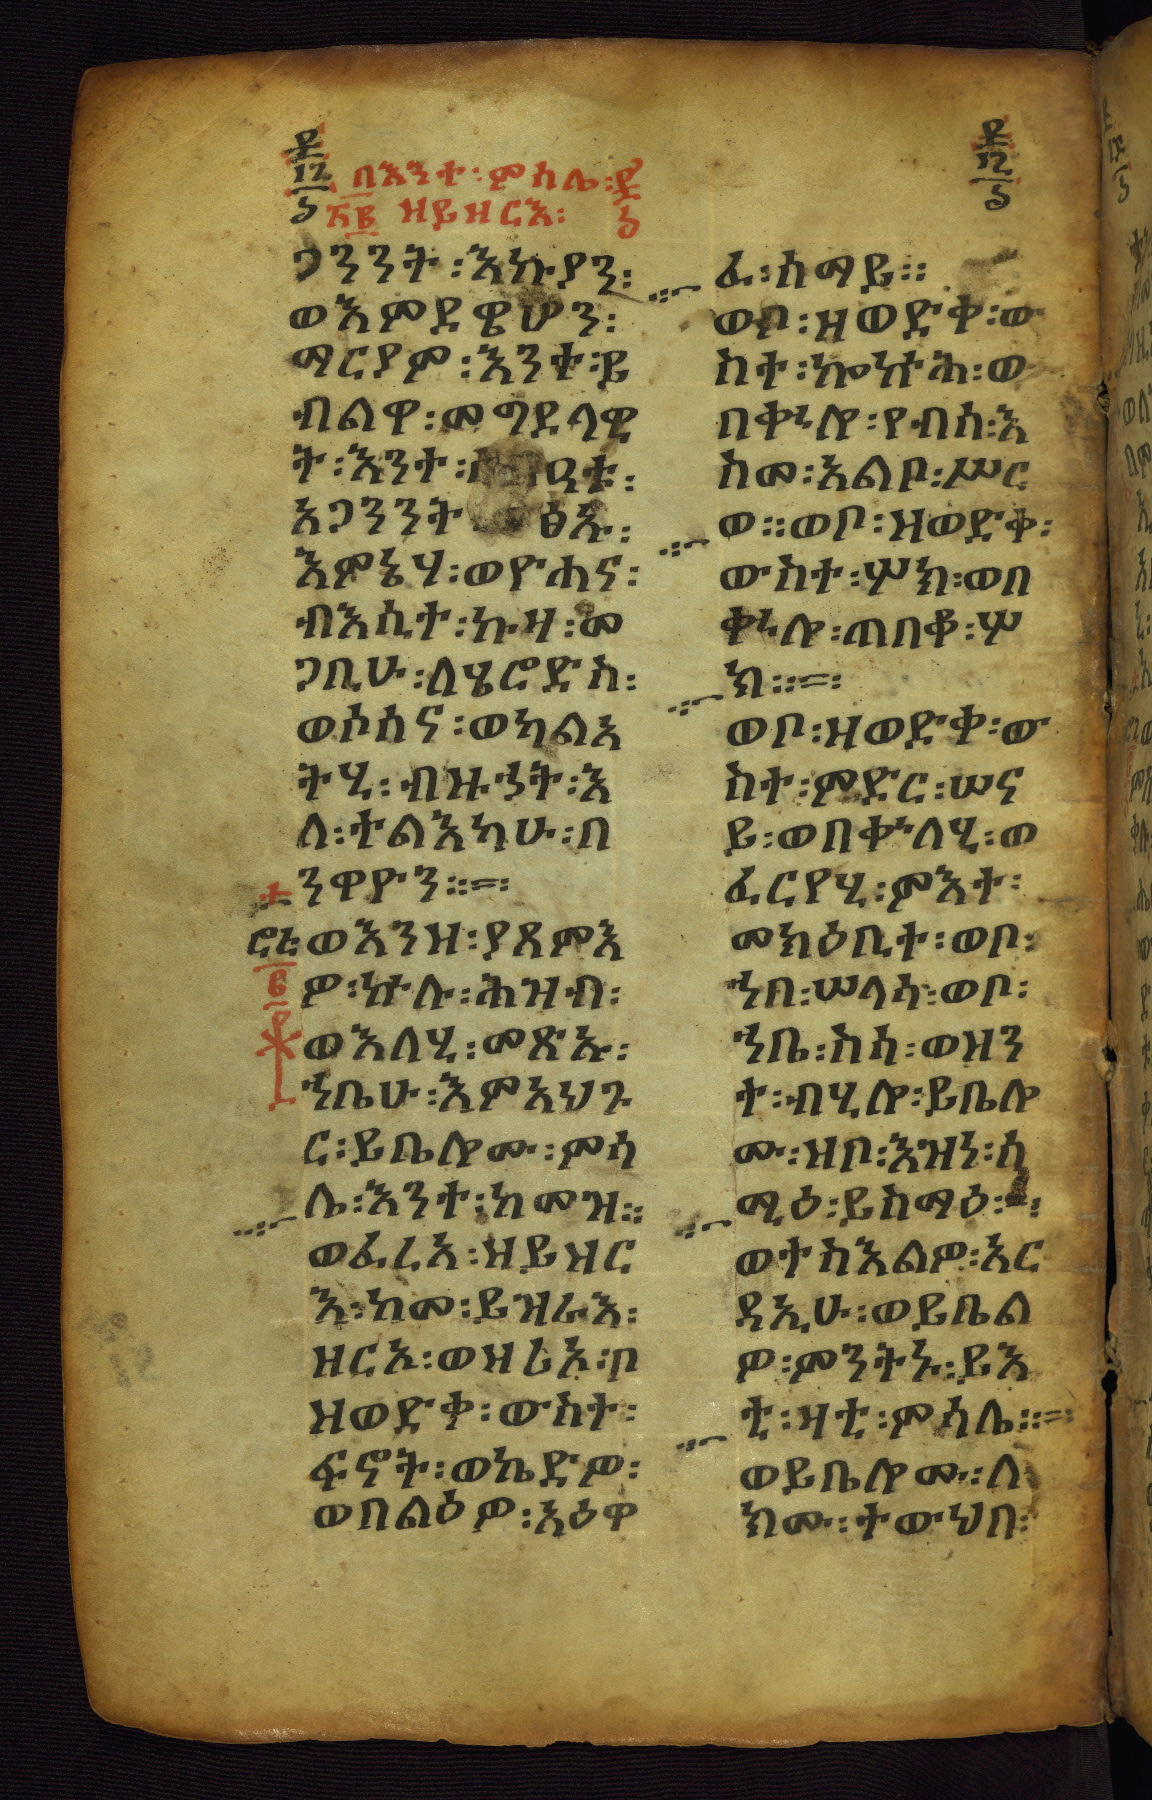 በእንተ፡ምሳሌ፡
ዘይዘርእ፡
ጋንንት፡እኩያን፡
ወእምደዌሆን፡
ማርያም፡እንተ፡ይ
ብልዋ፡መግደላዊ
ት፡እንተ፡
አጋንንት
እምኔሃ፡ወዮሐና፡
ብእሲተ፡ኩዛ፡መ
ጋቢሁ፡ለሄሮድስ፡
ወሶስና፡ወካልእ
ትሂ፡ብዙኃት፡እ
ለ፡ተልእካሁ፡በ
ንዋዮን።
ወእንዝ፡ያጸምእ
ዎ፡ኵሉ፡ሕዝብ፡
ወእለሂ፡መጽኡ፡
ኀቤሁ፡እምአህጉ
ር፡ይቤሎሙ፡ምሳ
ሌ፡እንተ፡ከመዝ።
ወፈረአ፡ዘይዘር
እ፡ከመ፡ይዝራእ፡
ዘርኦ፡ወዝሪኦ፡ቦ
ዝወድቀ፡ውስተ፡
ፍኖት፡ወኬድዎ፡
ወበልዕዎ፡አዕዋ
ፈ፡ሰማይ።
ወቦ፡ዝወድቀ፡ው
ስተ፡ኰኵሕ፡ወ
በቍሎ፡የብሰ፡እ
ስመ፡አልቦ፡ሥር
ወ።ወቦ፡ዝወድቀ፡
ውስተ፡ሦክ፡ወበ
ቍሎ፡ጠበቆ፡ሦ
ክ።
ወቦ፡ዘወድቀ፡ው
ስተ፡ምድር፡ሠና
ይ፡ወበቍለሂ፡ወ
ፈርየሂ፡ምእተ፡
መክዕቢተ፡ወቦ፡
ኀበ፡ሠላሳ፡ወቦ፡
ኀቤ፡ስሳ፡ወዝን
ተ፡ብሂሎ፡ይቤሎ
ሙ፡ዝቦ፡እዝነ፡ሰ
ሚዕ፡ይስማዕ።
ወተስእልዎ፡አር
ዳኢሁ፡ወይቤል
ዎ፡ምንትኑ፡ይእ
ቲ፡ዛቲ፡ምሳሌ።
ወይቤሎሙ፡ለ
ክሙ፡ተውህበ፡